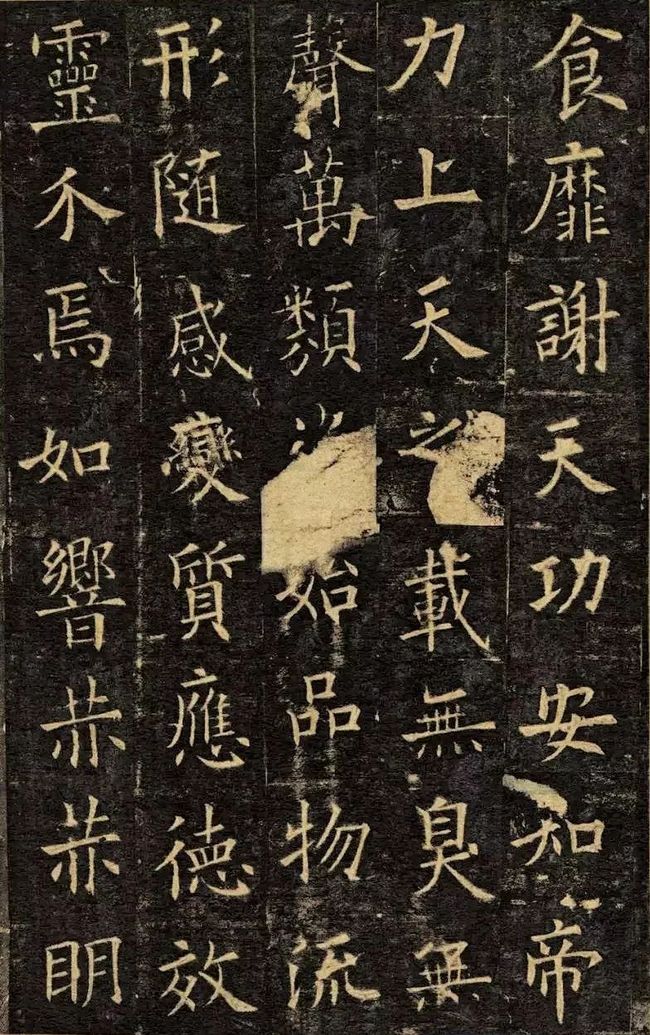 食靡謝天功安知帝
力上天之載無臭無
聲萬類始品物流
形隨感變質應德效
靈介焉如響赫赫眀